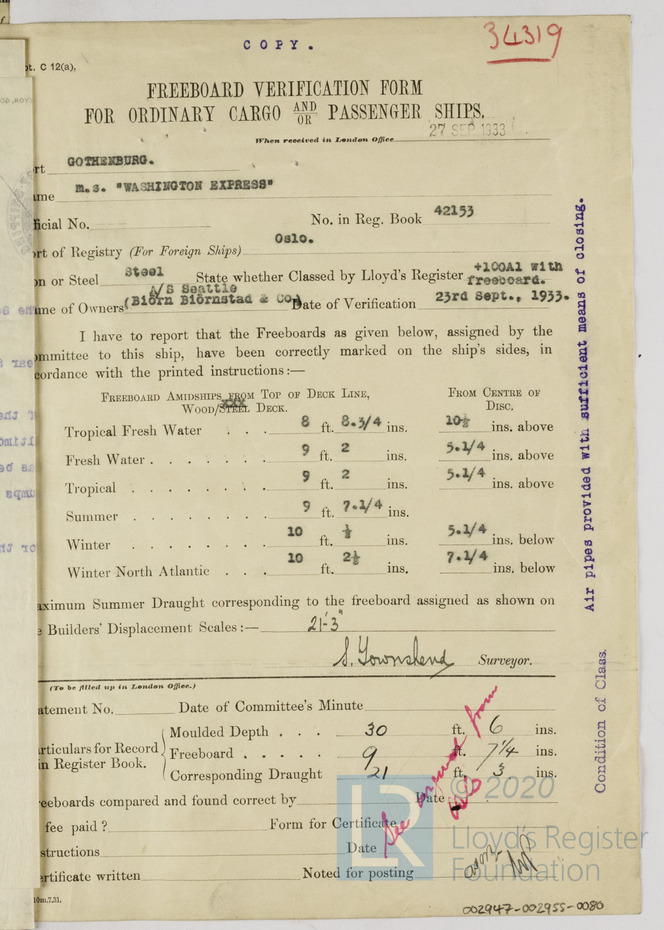 COPY.
34319
pt. C 12(a),
FREEBOARD VERIFICATION FORM
FOR ORDINARY CARGO AND/OR PASSENGER SHIPS.
When received in London Office 27 SEP 1933
rt GOTHENBURG.
ame m.s. "WASHINGTON EXPRESS"
ficial No. No. in Reg. Book 42153
rt of Registry (For Foreign Ships) Oslo.
on or Steel Steel State whether Classed by Lloyd's Register +100A1 with freeboard.
me of Owners A/S Seattle (Biörn Biörnstad & Co) Date of Verification 23rd Sept., 1933.
I have to report that the Freeboards as given below, assigned by the
ommittee to this ship, have been correctly marked on the ship's sides, in
cordance with the printed instructions:—
Freeboard Amidships from Top of Deck Line, From Centre of
Wood/Steel Deck. Disc.
Tropical Fresh Water . . . 8 ft. 8.3/4 ins. 10½ ins. above
Fresh Water . . . . . . 9 ft. 2 ins. 5.1/4 ins. above
Tropical . . . . . . . 9 ft. 2 ins. 5.1/4 ins. above
Summer . . . . . . . 9 ft. 7.1/4 ins.
Winter . . . . . . . 10 ft. ½ ins. 5.1/4 ins. below
Winter North Atlantic . . . 10 ft. 2½ ins. 7.1/4 ins. below
aximum Summer Draught corresponding to the freeboard assigned as shown on
e Builders' Displacement Scales:— 21'-3"
S. Townshend Surveyor.
(To be filled up in London Office.)
atement No. Date of Committee's Minute
Moulded Depth . 30 ft. 6 ins.
articulars for Record in Register Book. Freeboard . . . . . 9 ft. 7¼ ins.
Corresponding Draught 21 ft. 3 ins.
eeboards compared and found correct by Date
fee paid ? Form for Certificate
structions Date
ertificate written Noted for posting
10m.7,31.
002947-002955-0080
Air pipes provided with sufficient means of closing.
Condition of Class.
© 2020
Lloyd's Register
Foundation
LR